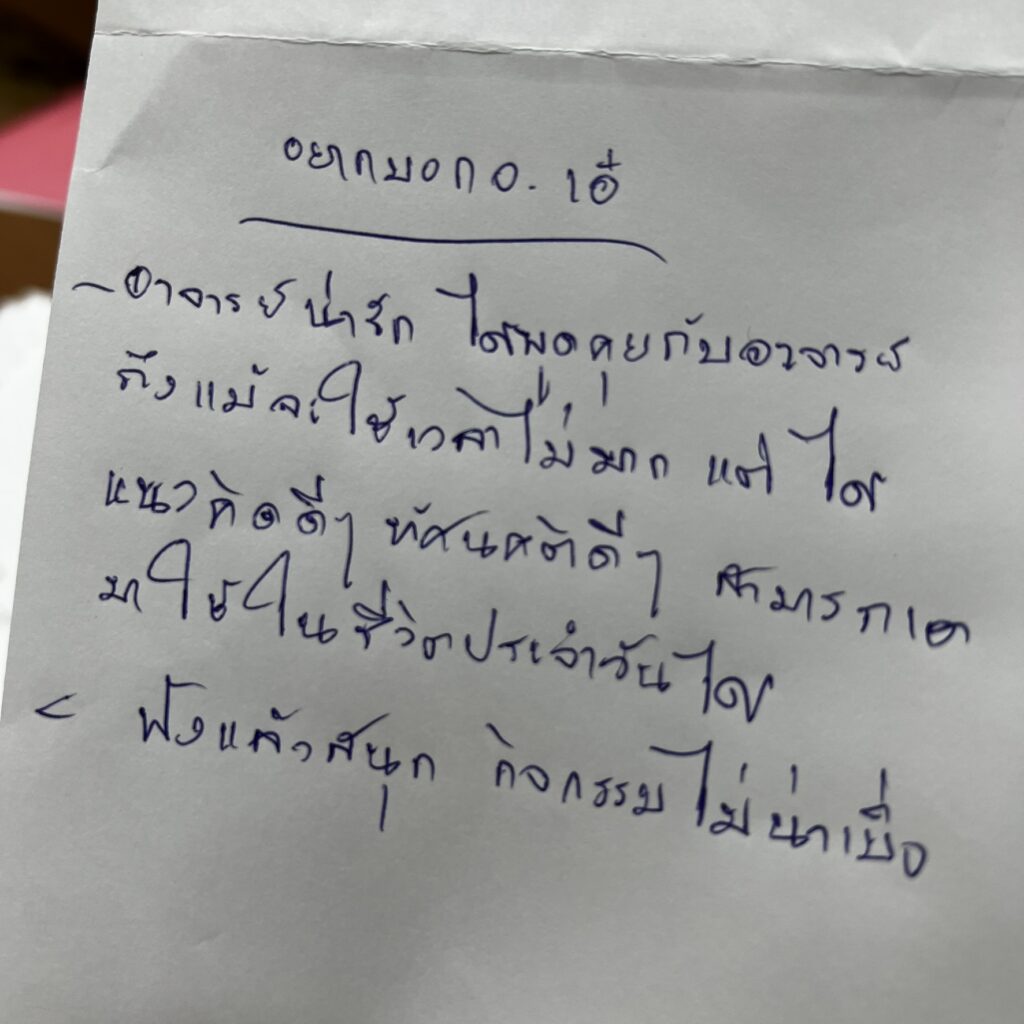 อยากบอก อ. เอ๋
- อาจารย์น่ารัก ได้พูดคุยกับอาจารย์
ถึงแม้จะใช้เวลาไม่มาก แต่ได้
แนวคิดดีๆ ทัศนคติดีๆ สามารถเอา
มาใช้ในชีวิตประจำวันได้
- ฟังแล้วสนุก กิจกรรมไม่น่าเบื่อ